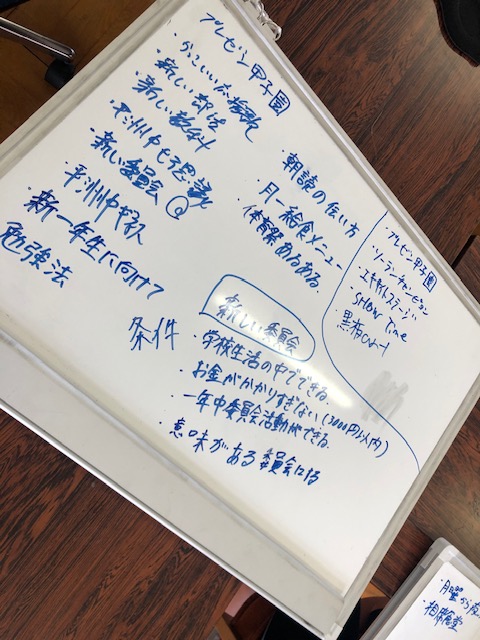 プレゼン甲子園
・かっこいい
・新しい部活
・新しい教科
・平洲中七不思議
・新しい委員会 @
・平洲中
・新一年生に向けて
勉強法
・朝読の
・月一給食メニュー
・体育祭あるある
・プレゼン甲子園
・ソーラーチューピョン
・エキサイトステージ
・SHOW Time
・黒板
新しい委員会
条件
・学校生活の中でできる。
・お金がかかりすぎない(3000円以内)
・一年中委員会活動ができる。
・意味がある委員会にする
・月曜から
・相席食堂